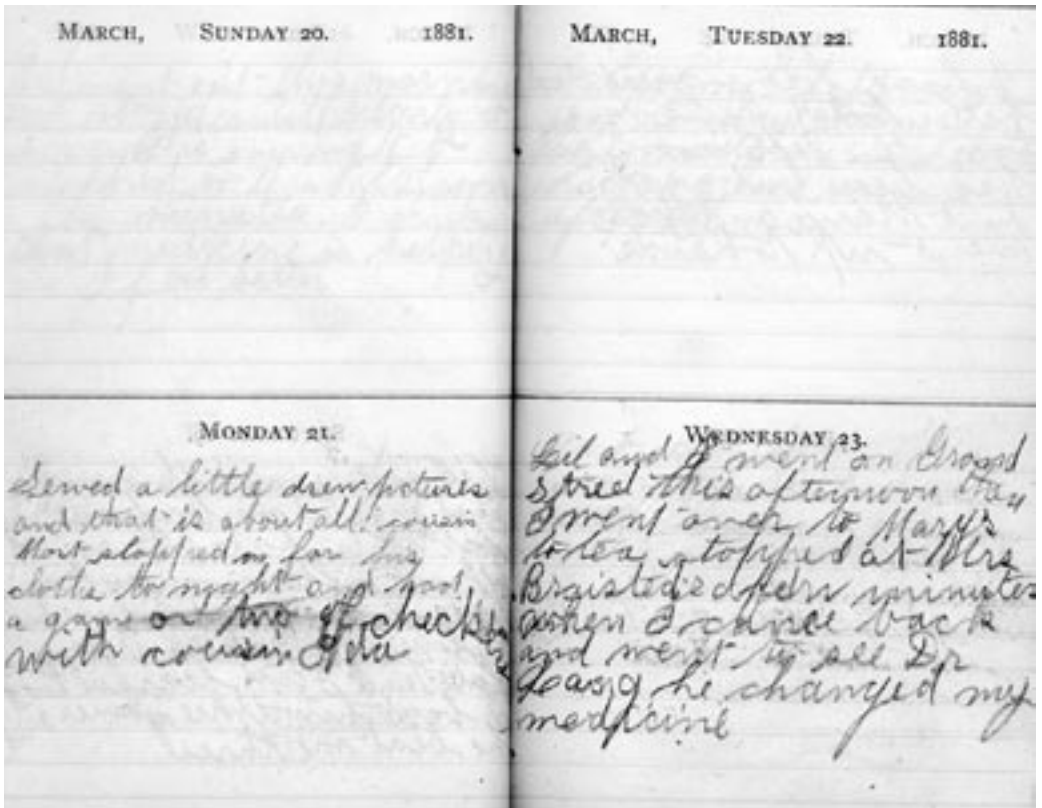 MARCH, SUNDAY 20. 1881.
MONDAY 21.
Sewed a little drew pictures
and that is about all. cousin
Mort stopped in for his
clothe to night and had
a game or two of checkers
with cousin Ida
MARCH, TUESDAY 22. 1881.
WEDNESDAY 23.
Lil and I went on Grand
street this afternoon
I went over to Mary's
to tea stopped at Mrs
Braisted's a few minutes
when I came back
and went to see Dr
he changed my
medicine